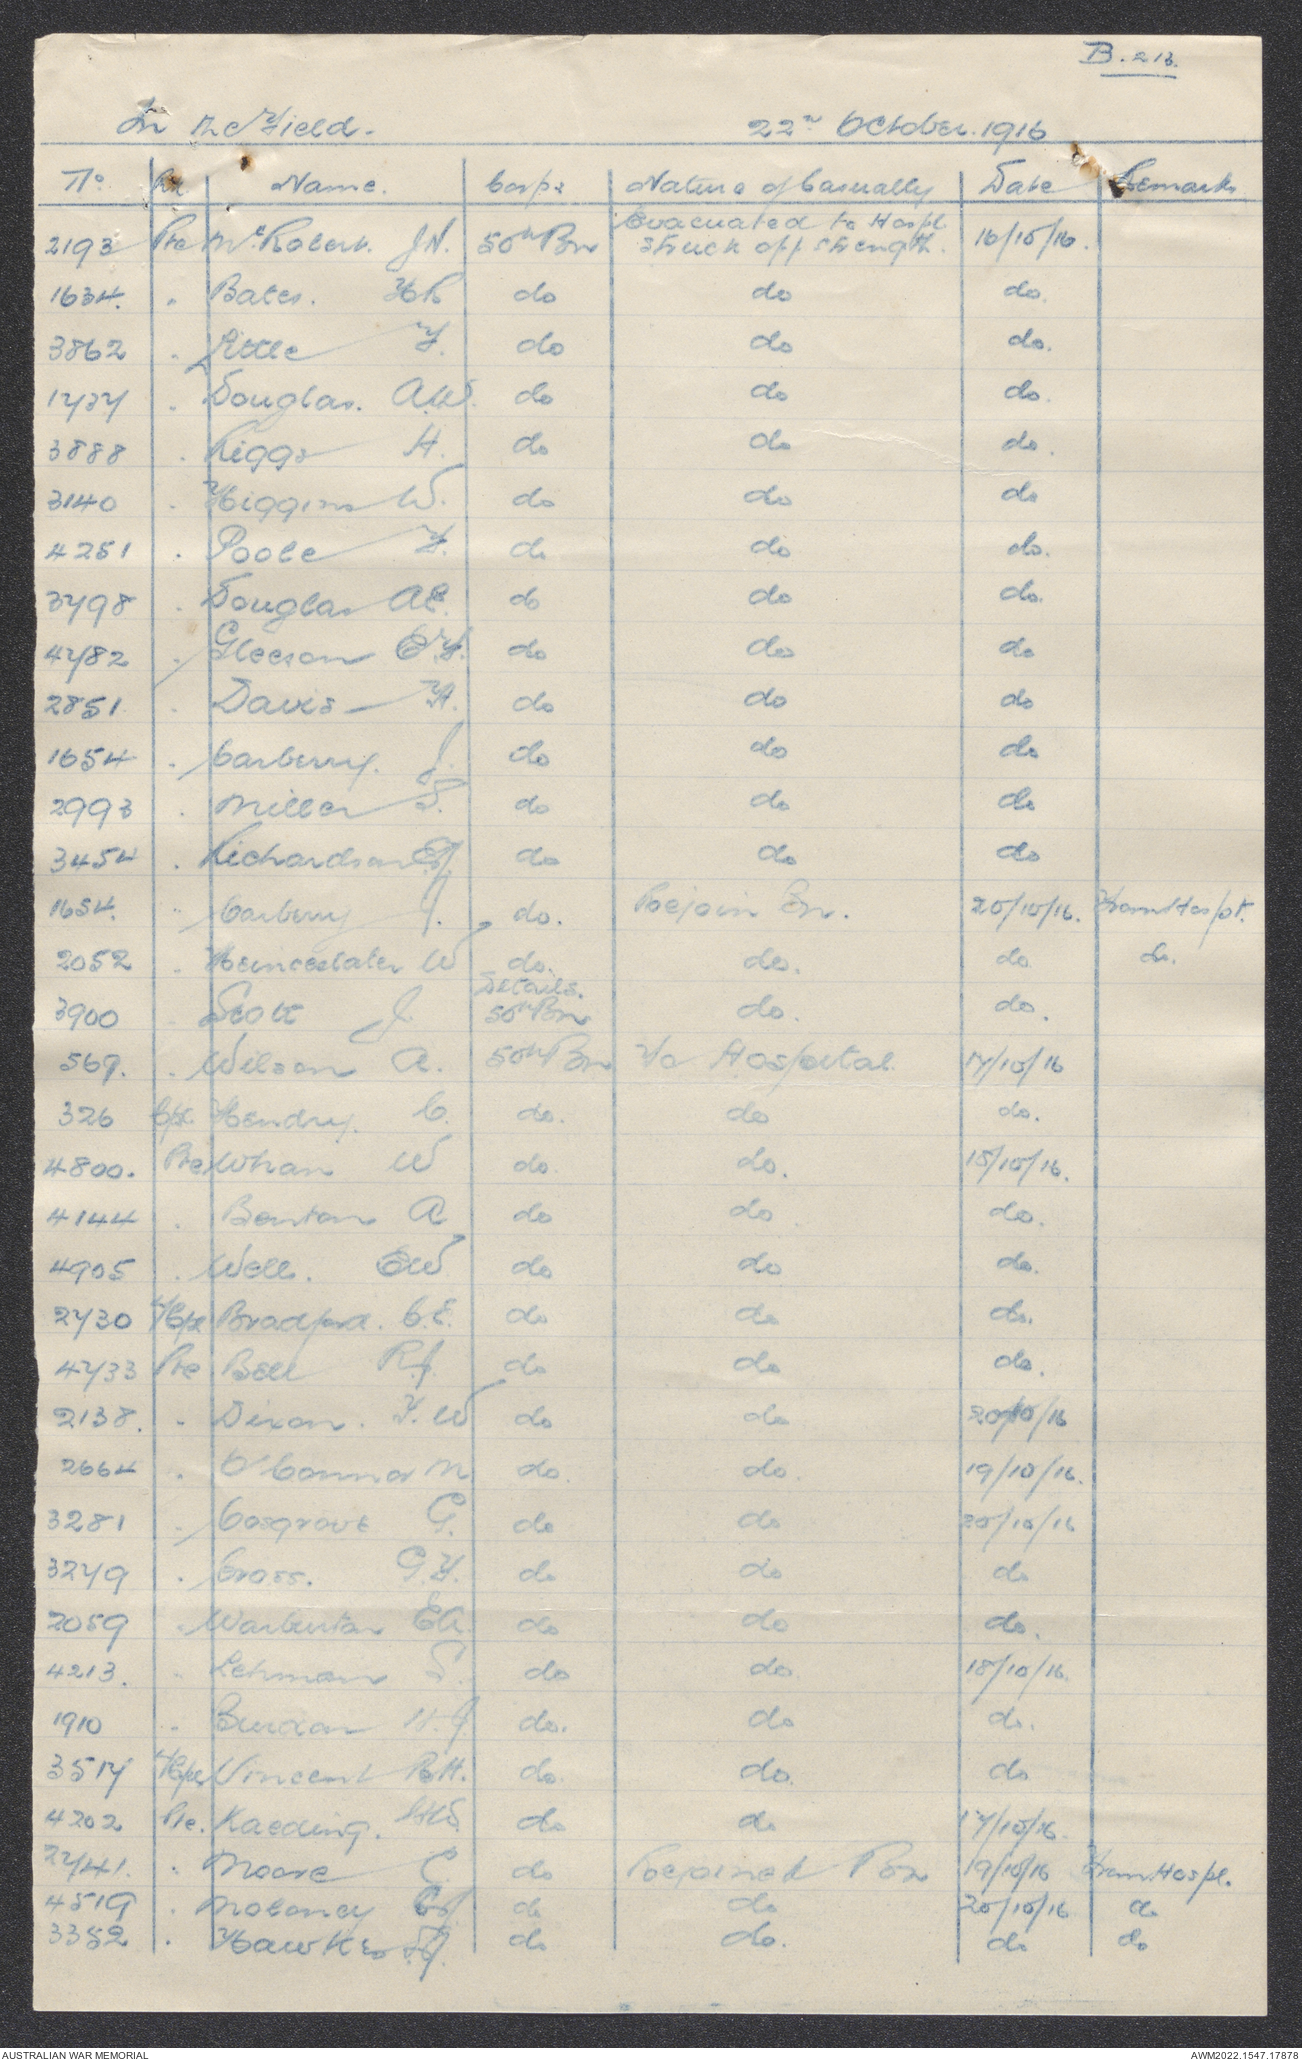 B. 213.
In the Field. 22nd October. 1916
No. Rk. Name. Corps Nature of Casualty Date Remarks
Evacuated to Hospl.
2193 Pte McRobert. J.N. 50th Bn struck off strength. 16/10/16.
1634. " Bates. H.R do do do.
3862 " Little F. do do do.
1737 " Douglas. A.W. do do do.
3888 " Riggs H. do do do.
3140 " Higgins W. do do do
4251 " Poole F. do do do.
3798 " Douglas A.E. do do do.
4782 " Gleeson E.F. do do do
2851 " Davis H. do do do
1654 " Carberry. J. do do do
2993 " Miller S. do do do
3454 " Richardson E.J. do do do
1654. " Carberry J. do. Rejoin Bn. 20/10/16. From Hospt.
2052 " W do. do. do do.
Details.
3900 " Scott J. 50th Bn do. do.
569. " Wilson A. 50th Bn To Hospital. 17/10/16
326 Cpl. Hendry. C. do. do do.
4800. Pte Whan W do. do. 15/10/16.
4144 " Bonton A do do do.
4905 " Wells. E.W do do do.
2730 L/Cpl Bradford. C.E. do do do.
4733 Pte Bell R.J. do do do.
2138. " Dixon. F.W do do 20/10/16
2664 " O'Connor M do. do. 19/10/16.
3281 " Cosgrove G. do do 20/10/16
3279 " Cross. G.F. do do do
2059 " Warburton E.A. do do do.
4213. " Lehman S. do do. 18/10/16.
1910 " Burdon H.J. do. do do.
3517 L/Cpl Vincent R.H. do. do. do
4202 Pte. Kaeding. do do 17/10/16.
2741. " Moore C. do Rejoined Bn 19/10/16 From Hospl.
4519 " Moloney do do 20/10/16 do
3352 " Hawkes do do. do do
AUSTRALIAN WAR MEMORIAL AWM2022.1547.17878